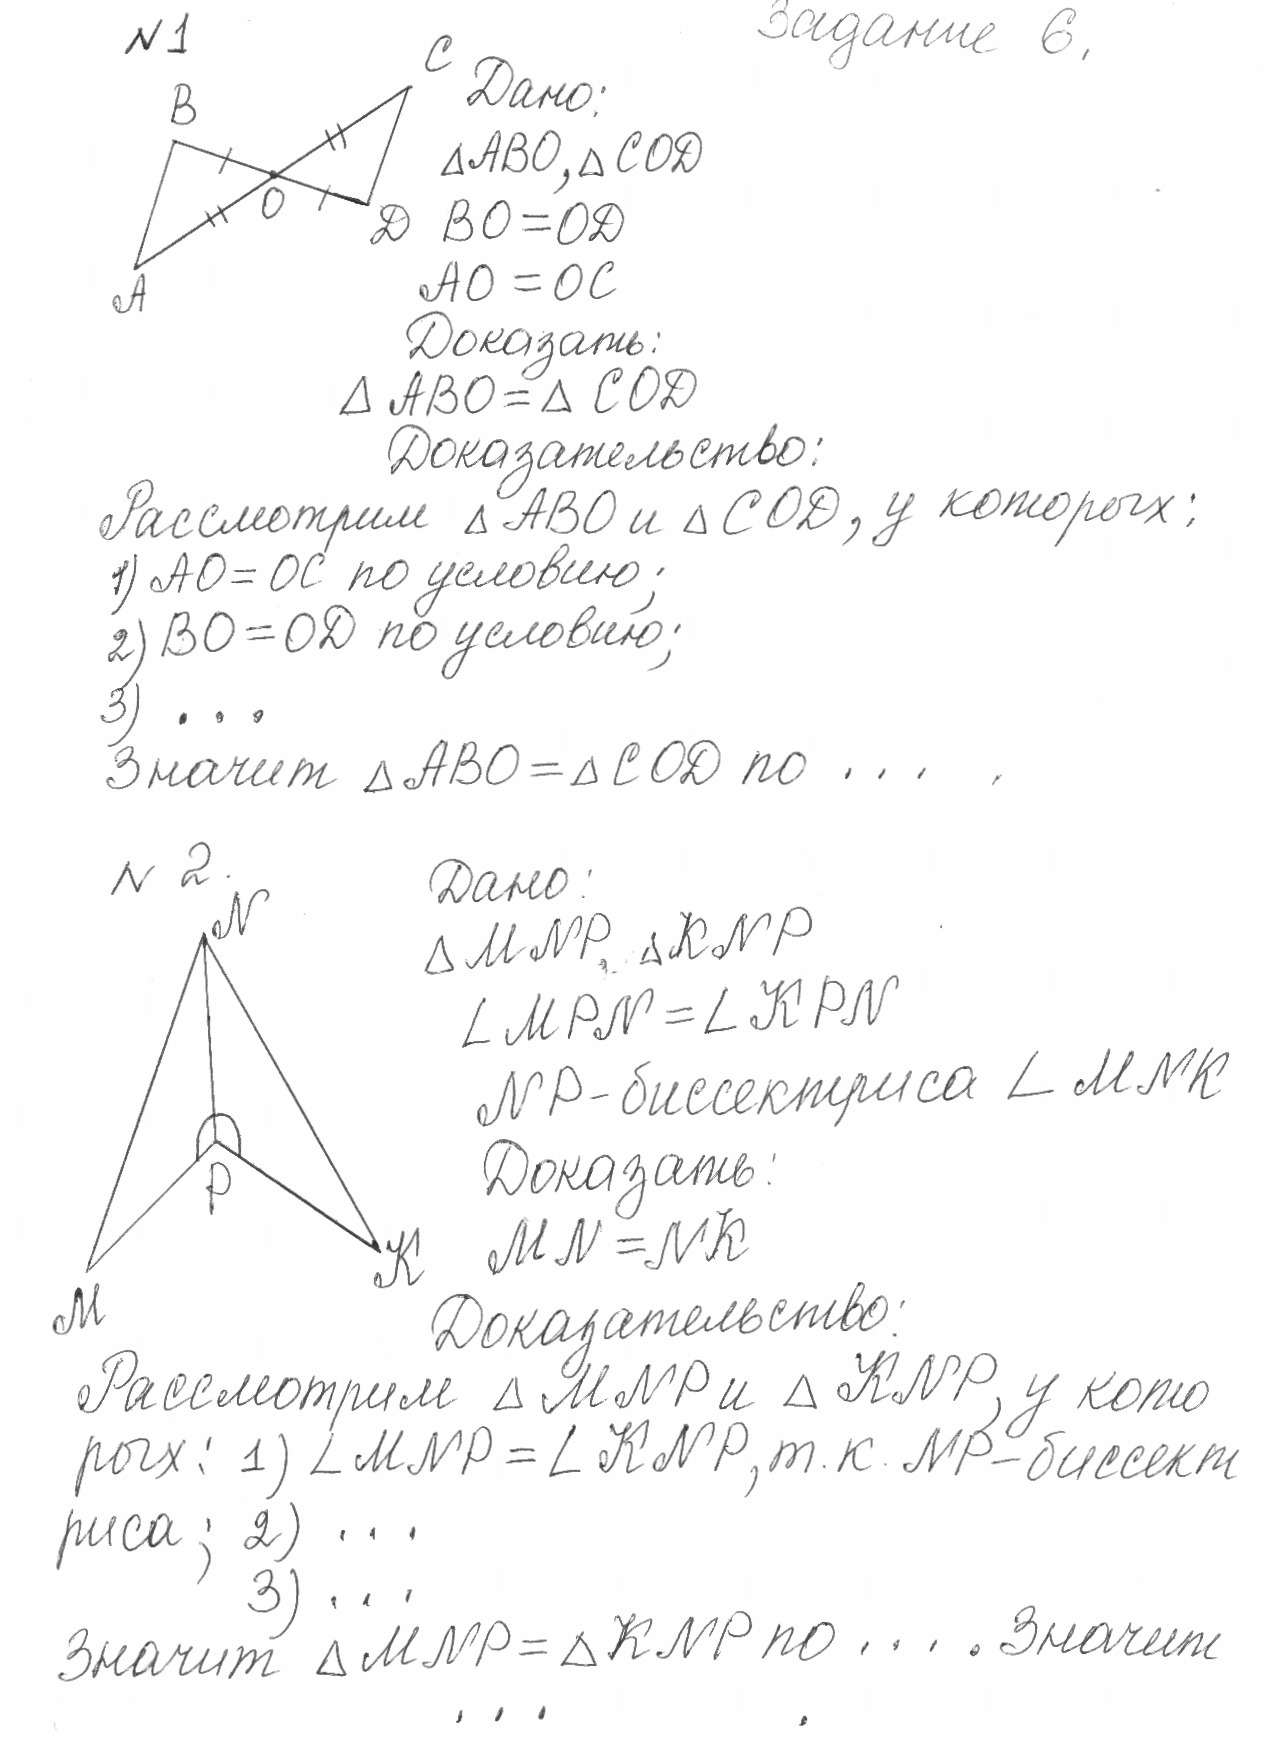 N1
Задание 6.
C
B
Дано:
△ABO, △COD
O
D
BO=OD
A
AO=OC
Доказать:
△ABO=△COD
Доказательство:
Рассмотрим △ABO и △COD, у которых:
1) AO=OC по условию;
2) BO=OD по условию;
3) ...
Значит △ABO=△COD по ... .
N 2.
N
Дано:
△MNP, △KNP
∠MPN=∠KPN
NP-биссектриса ∠MNK
P
Доказать:
MN=NK
K
M
Доказательство:
Рассмотрим △MNP и △KNP, у кото
рых: 1) ∠MNP=∠KNP, т.к. NP-биссект
риса; 2) ...
3) ...
Значит △MNP=△KNP по .... Значит
... .